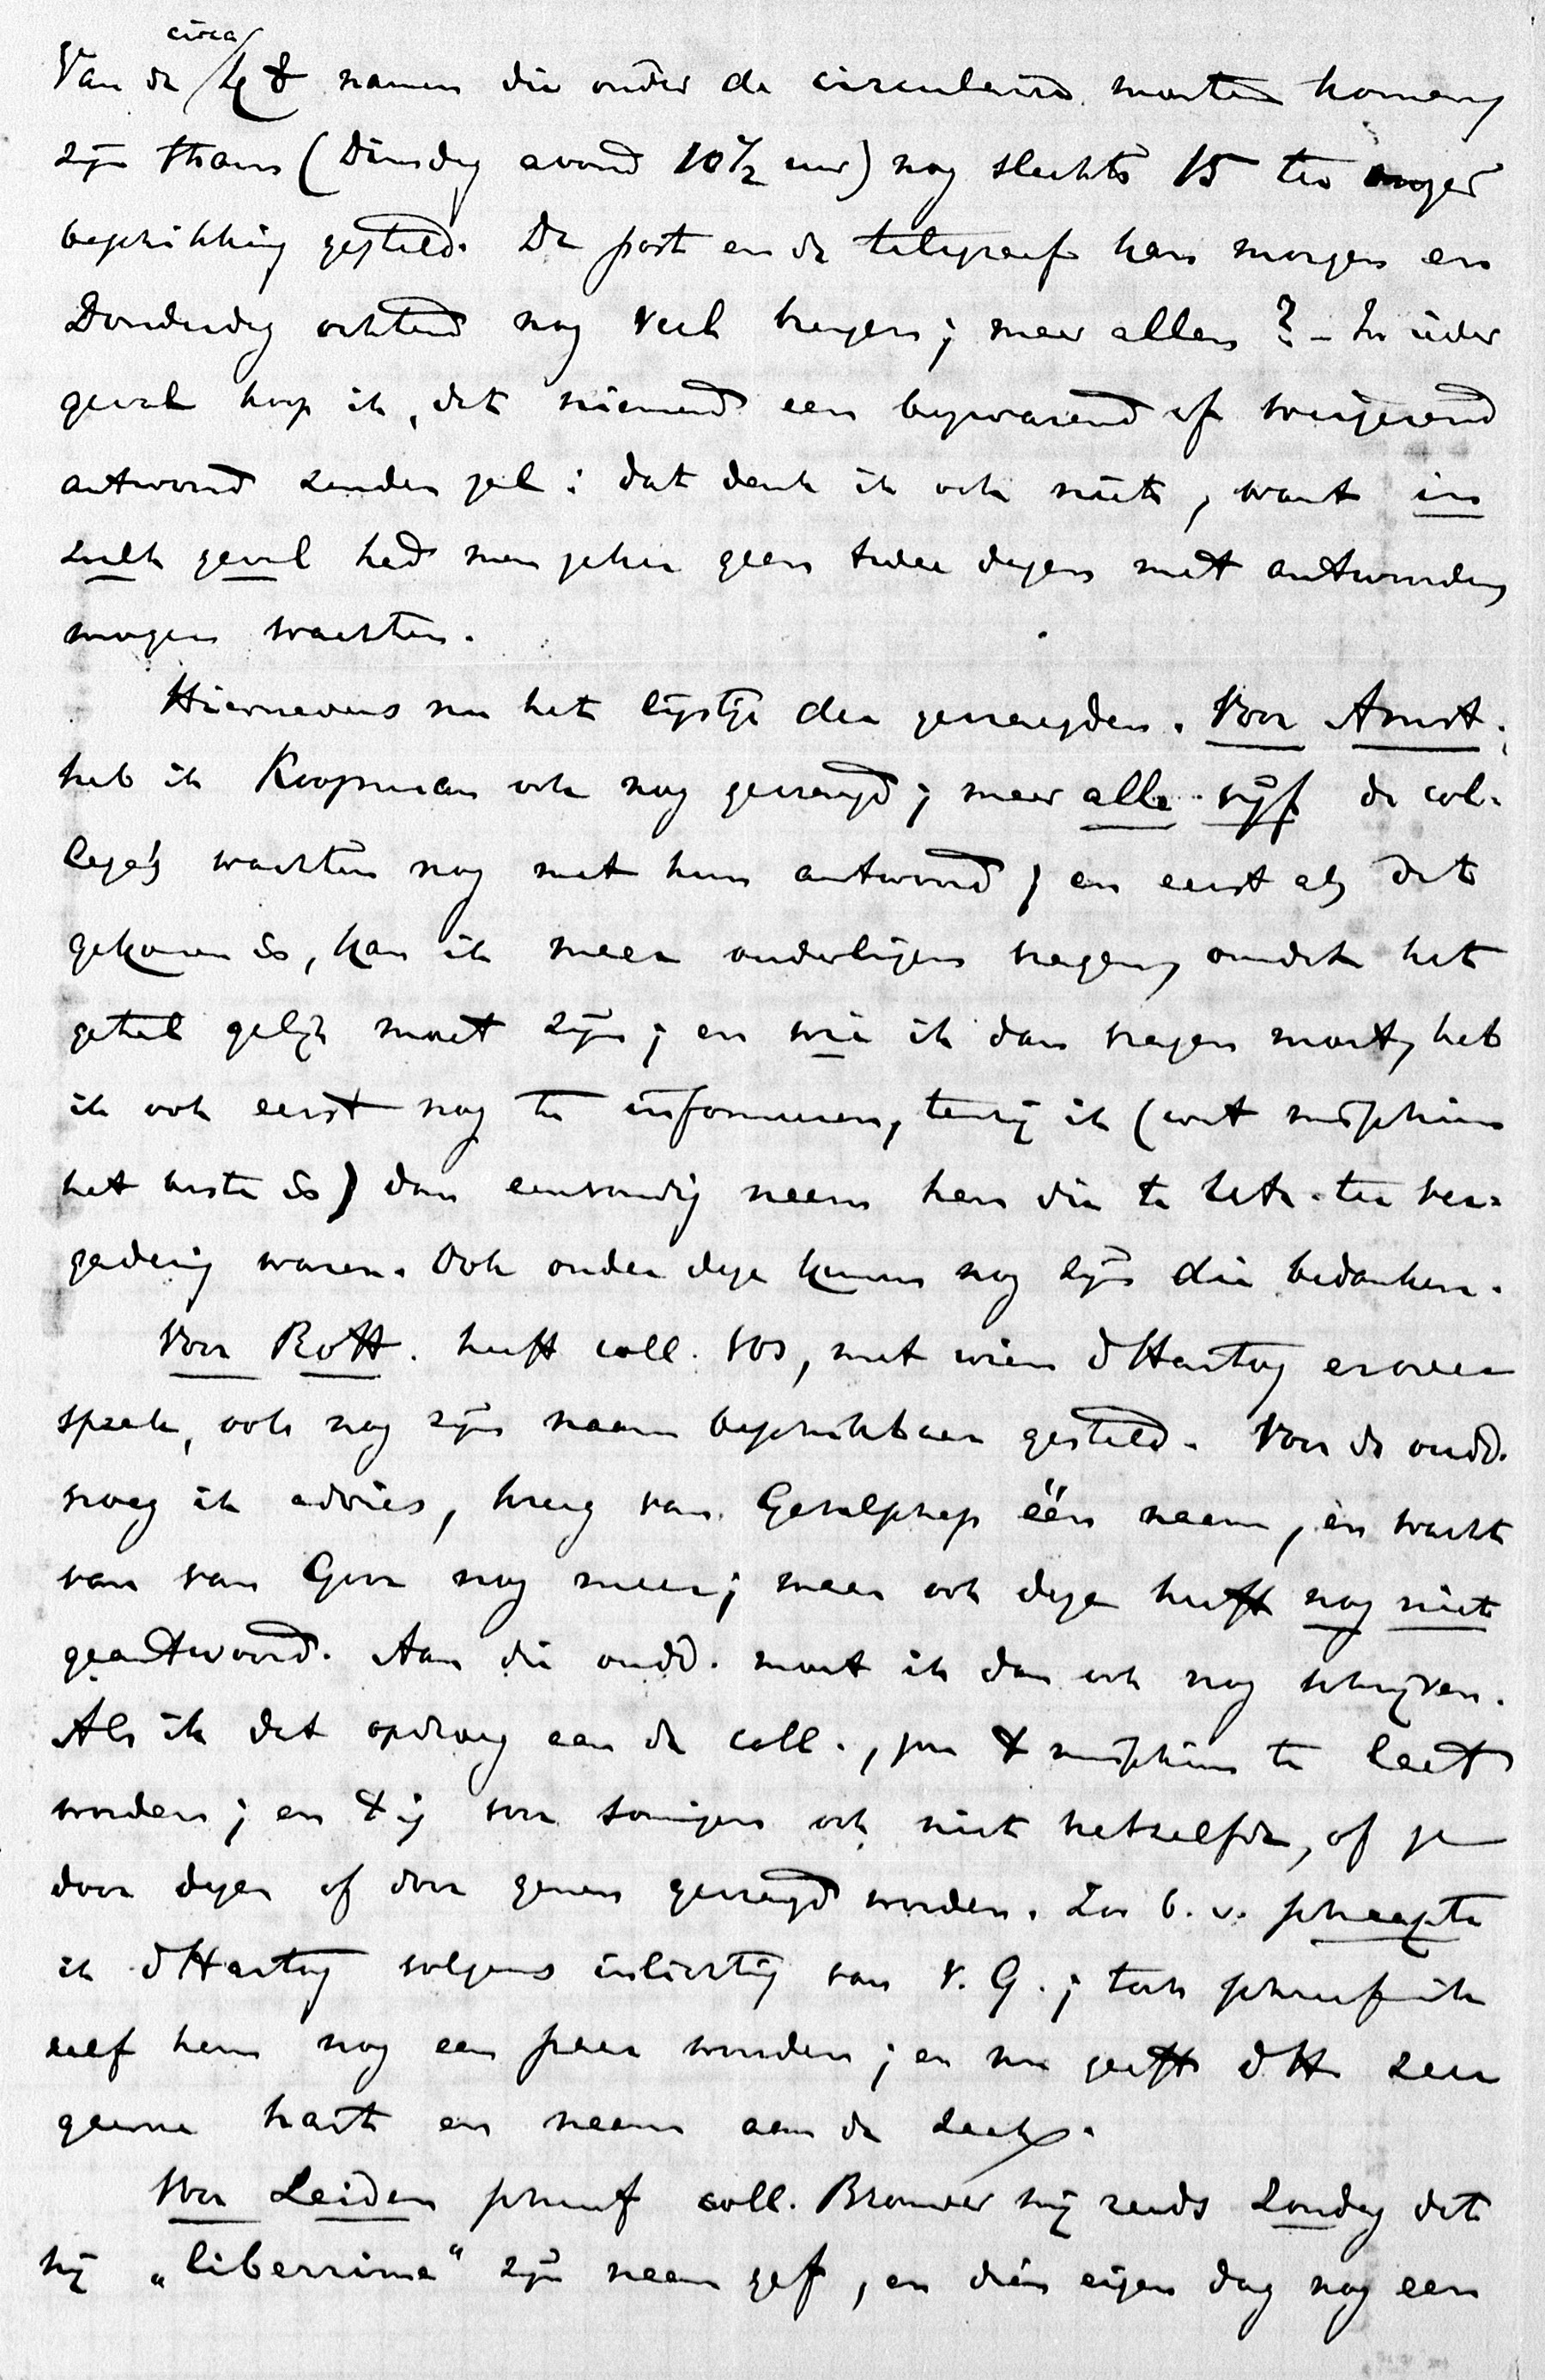 Van de circa 48 namen die onder de circulaire moeten komen,
zijn thans (Dinsdag avond 10½ uur) nog slechts 15 te onzer
beschikking gesteld. De post en de telegraaf kan morgen en
Donderdag ochtend nog veel brengen; maar allen? – In ieder
geval hoop ik, dat niemand een bezwarend of weigerend
antwoord zenden zal: dat denk ik ook niet, want in
zulk geval had men zeker geen twee dagen met antwoorden
mogen wachten.
Hiernevens nu het lijstje der gevraagden. Voor Amst.
heb ik Koopman ook nog gevraagd; maar alle vijf de col-
lega's wachten nog met hun antwoord; en eerst als dit
gekomen is, kan ik meer ouderlingen vragen, omdat het
getal gelijk moet zijn; en wie ik dan vragen moet, heb
ik ook eerst nog te informeeren, tenzij ik (wat misschien
het beste is) dan eenvoudig neem hen die te Utr. ter ver-
gadering waren. Ook onder deze kunnen nog zijn die bedanken.
Voor Rott. heeft coll. Vos, met wien d'Hartog erover
sprak, ook nog zijn naam beschikbaar gesteld. Voor de oudd.
vroeg ik advies, kreeg van Gevalschap één naam, en wacht
van van Goor nog meer; maar ook deze heeft nog niet
geantwoord. Aan die oudd. moet ik dan ook nog schrijven.
Als ik dat opdroeg aan de coll., zou 't misschien te laat
worden; en 't is voor sommigen ook niet hetzelfde, of ze
door dezen of door genen gevraagd worden. Zoo b.v. schraapte
ik d'Hartog volgens inlichting van v. G.; toch schreef ik
zelf hem nog een paar woorden; en nu geeft d'H zeer
gaarne hart en naam aan de zaak.
Voor Leiden schreef coll. Brouwer mij reeds Zondag dat
hij „liberrime" zijn naam gaf, en dien eigen dag nog een